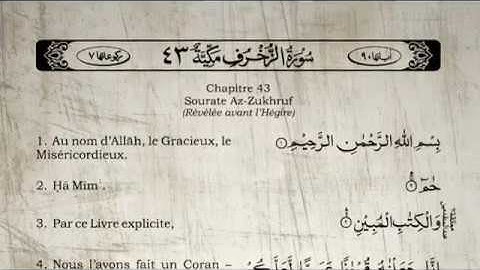 سُورَةُ الزُّخْرُفِ مَكِّيَّةٌ ٤٣
اٰیاتھا ٩٠
رکوعاتھا ٧
Chapitre 43
Sourate Az-Zukhruf
(Révélée avant l'Hégire)
1. Au nom d'Allāh, le Gracieux, le
Miséricordieux.
بِسْمِ اللّٰهِ الرَّحْمٰنِ الرَّحِيْمِ
2. Ḥā Mīm.
حٰمٓ
3. Par ce Livre explicite,
وَالْكِتٰبِ الْمُبِيْنِ
4. Nous l'avons fait un Coran –